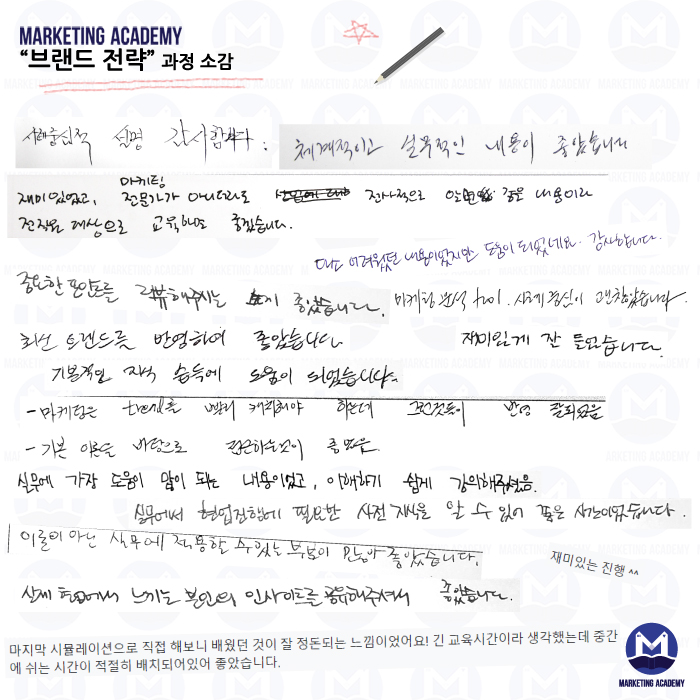 MARKETING ACADEMY
“브랜드 전략” 과정 소감
사례중심적 설명 감사합니다.
체계적이고 실무적인 내용이 좋았습니다
마케팅
재미있었고, 전문가가 아니더라도 전사적으로 좋은 내용이라
전직원 대상으로 교육해도 좋겠습니다.
다소 어려웠던 내용이었지만 도움이 되었네요. 감사합니다.
중요한 포인트를 리뷰해주시는 게 좋았습니다.
마케팅 분석 사례 중심이 괜찮았습니다.
최신 트렌드를 반영하여 좋았습니다
재미있게 잘 들었습니다.
기본적인 지식 습득에 도움이 되었습니다.
- 마케팅은 트렌드를 빨리 캐치해야 하는데 그런것들이 반영 잘되었음
- 기본 이론을 바탕으로 접근하는것이 좋았음.
실무에 가장 도움이 많이 되는 내용이었고, 이해하기 쉽게 강의해주셨음.
실무에서 현업진행에 필요한 사전 지식을 알 수 있어 좋은 시간이었습니다.
이론이 아닌 실무에 적용할 수 있는 부분이 많아 좋았습니다.
재미있는 진행 ^^
실제 현업에서 느끼는 본인의 인사이트를 공유해주셔서 좋았습니다.
마지막 시뮬레이션으로 직접 해보니 배웠던 것이 잘 정돈되는 느낌이었어요! 긴 교육시간이라 생각했는데 중간
에 쉬는 시간이 적절히 배치되어있어 좋았습니다.
MARKETING ACADEMY